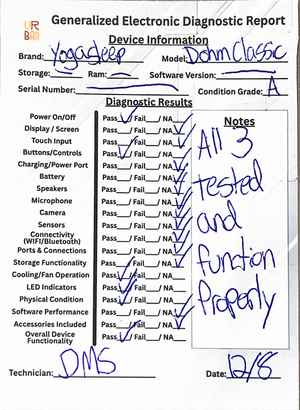 UR
BAN
Generalized Electronic Diagnostic Report
Device Information
Brand: Yogasleep Model: Dohm Classic
Storage: — Ram: — Software Version:
Serial Number: Condition Grade: A
Diagnostic Results
Power On/Off Pass ✓/Fail /NA
Display / Screen Pass /Fail /NA ✓
Touch Input Pass /Fail /NA ✓
Buttons/Controls Pass ✓/Fail /NA
Charging/Power Port Pass /Fail /NA ✓
Battery Pass /Fail /NA ✓
Speakers Pass /Fail /NA ✓
Microphone Pass /Fail /NA ✓
Camera Pass /Fail /NA ✓
Sensors Pass /Fail /NA ✓
Connectivity
(WIFI/Bluetooth) Pass /Fail /NA ✓
Ports & Connections Pass /Fail /NA ✓
Storage Functionality Pass /Fail /NA ✓
Cooling/Fan Operation Pass ✓/Fail /NA
LED Indicators Pass /Fail /NA ✓
Physical Condition Pass ✓/Fail /NA
Software Performance Pass /Fail /NA ✓
Accessories Included Pass /Fail /NA ✓
Overall Device
Functionality Pass ✓/Fail /NA
Notes
All 3
tested
and
function
Properly
Technician: DMS Date: 12/8